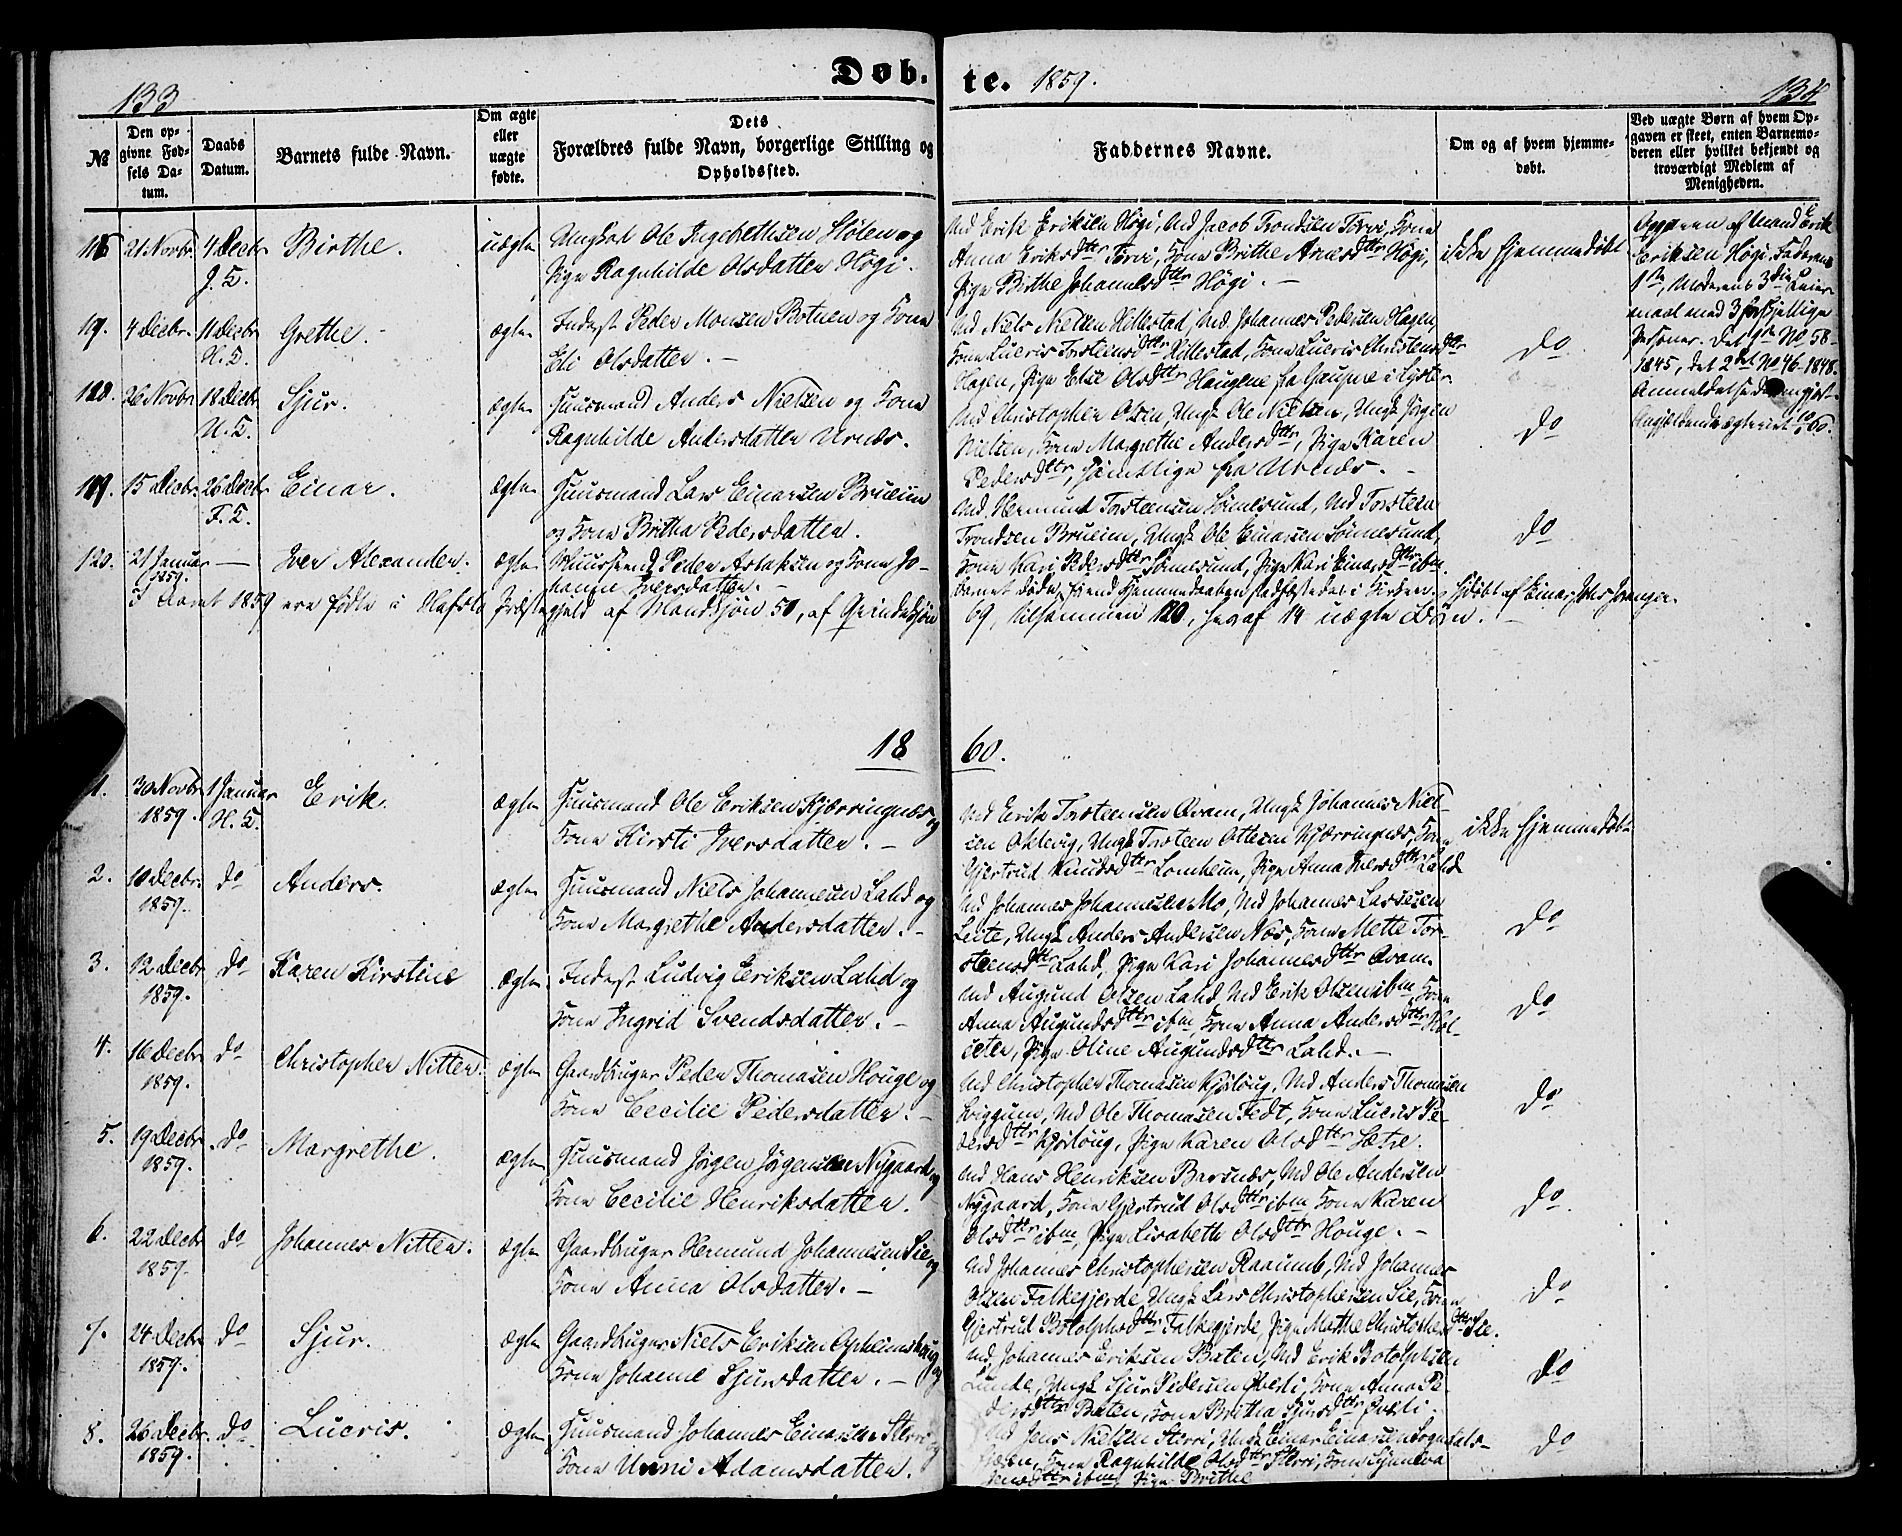 Døb. te. 1859.
133
134
№
Den opgivne Fødsels Datum.
Daabs Datum.
Barnets fulde Navn.
Om ægte eller uægte fødte.
Dets Forældres fulde Navn, borgerlige Stilling og Opholdssted.
Faddernes Navne.
Om og af hvem hjemmedøbt.
Ved uægte Børn af hvem Opgaven er skeet, enten Barnemoderen eller hvilket bekjendt og troværdigt Medlem af Menigheden.
21 Novbr. 4 Decbr Birthe. uægte Ungkal Ole Ingebrethsen Sløten og
Pige Ragnhilde Olsdatter Høgi.
Md Erik Eriksen Høgi, Md Jacob Trondsen Torvi, Kone
Anna Eriksdttr Torvi, Kone Brithe Arnesdttr Høgi,
Pige Birthe Johannesdttr Høgi. —
ikke hjemmedøbt.
Opgaven af Mand Erik
Eriksen Høgi, Faderens
1te, Moderens 3die Leier-
maal med 3 forskjellige
Personer. Det 1ste No 58-
1845, det 2det No 46-1848.
4 Decbr. 11 Decbr Grethe. ægte Inderst Peder Monsen Botnen og Kone
Eli Olsdatter. —
Md Niels Nielsen Hillestad, Md. Johannes Pedersen Hagen,
Kone Lucris Torsteensdttr Hillestad, Kone Lucris Christensdttr
Hagen, Pige Else Olsdttr Haugene fra Gaupne i Lyster
do
26 Novbr 18 Decbr Sjur. ægte Huusmand Anders Nielsen og Kone
Ragnhilde Andersdatter Urnæs.
Md Christopher Olsen, Ungk Ole Nielsen, Ungk Jørgen
Nielsen, Kone Margrethe Andersdttr, Pige Karen
Pedersdttr, samtlige fra Urnæs. —
do
119. 15 Decbr. 26 Decbr Einar. ægte Huusmand Lars Einarsen Brueim
og Kone Britha Pedersdatter.
Md Hermund Torsteensen Sømesund, Md Torsteen
Trondsen Brueim, Ungk Ole Einarsen Sømesund,
Kone Kari Pedersdttr Sømesund, Pige Kari Einarsdttr ibm.
do
120. 21 Januar 1859. — Iver Alexander. ægte Peder Aslaksen og Kone Jo-
hanne Iversdatter. —
Barnet døde, førend Hjemmedaaben stadfæstedes i Kirken.
I Aaret 1859 ere fødte i Hafslo Præstegjeld af Mandkjøn 51, af Qvindekjøn
69, tilsammen 120, heraf 14 uægte Børn. —
1860.
1. 30 Novbr 1859. 1 Januar Erik. ægte Huusmand Ole Eriksen Kjærringnæs og
Kone Kirsti Iversdatter. —
Md Erik Torsteensen Qvam, Ungk Johannes Niel-
sen Oklevig, Ungk Torsteen Ottesen Kjærringnæs, Kone
Gjertrud Knudsdttr Lomheim, Pige Anna Iversdttr Lahd
ikke hjemmedøbt
2. 10 Decbr. 1859. do Anders. ægte Huusmand Niels Johannesen Lahd og
Kone Margrethe Andersdatter. —
Md Johannes Johannesen Mo, Md Johannes Lassesen
Leite, Ungk Anders Andersen Næs, Kone Mette Tor-
steensdttr Lahd, Pige Kari Johannesdttr Qvam.
do
3. 12 Decbr 1859. do Karen Kirstine ægte Inderst Ludvig Eriksen Lahd og
Kone Ingrid Svendsdatter. —
Md Augund Olsen Lahd Md Erik Olsen ibm, Kone
Anna Augundsdttr ibm Kone Anna Andersdttr Hol-
seter, Pige Oline Augundsdttr Lahd. —
do
4. 16 Decbr 1859. do Christopher Nitter. ægte Gaardbruger Peder Thomasen Houge og
Kone Cecilie Pedersdatter. —
Md Christopher Thomasen Kjørloug, Md Anders Thomasen
Ole Thomasen Fedt, Kone Lucris Pe-
dersdttr Kjørloug, Pige Karen Olsdttr Sætre.
do
5. 19 Decbr 1859. do Margrethe. ægte Huusmand Jørgen Jørgensen Nygaard og
Kone Cecilie Henriksdatter.
Md Hans Henriksen Barsnæs, Md Ole Andersen
Nygaard, Kone Gjertrud Olsdttr ibm Kone Karen
Olsdttr ibm, Pige Lisabeth Olsdttr Houge. —
do
6. 22 Decbr 1859. do Johannes Nitter. ægte Gaardbruger Hermund Johannesen Sie og
Kone Anna Olsdatter. —
Md Johannes Christophersen Raaum, Md Johannes
Olsen Falkegjerde, Ungk Lars Christophersen Sie, Kone
Gjertrud Botolphsdttr Falkegjerde, Pige Marthe Christophersdttr Sie.
do
7. 24 Decbr 1859. do Sjur. ægte Gaardbruger Niels Eriksen Opheimshoug og
Kone Johanne Sjursdatter. —
Md, Johannes Eriksen Baten, Md Erik Botolphsen
Lunde, Ungk Sjur Pedersen Kone Anna Pe-
dersdttr Baten, Kone Britha Sjursdttr
do
8. 26 Decbr. 1859. do Lucris. ægte Huusmand Johannes Einarsen Sterri og
Kone Unni Adamsdatter.
Md Jens Nielsen Sterri, Ungk Einar Einarsen Sogndals-
Kone Ragnhilde Olsdttr Sterri, Kone Synneva
Jensdttr ibm, Pige Brithe
do